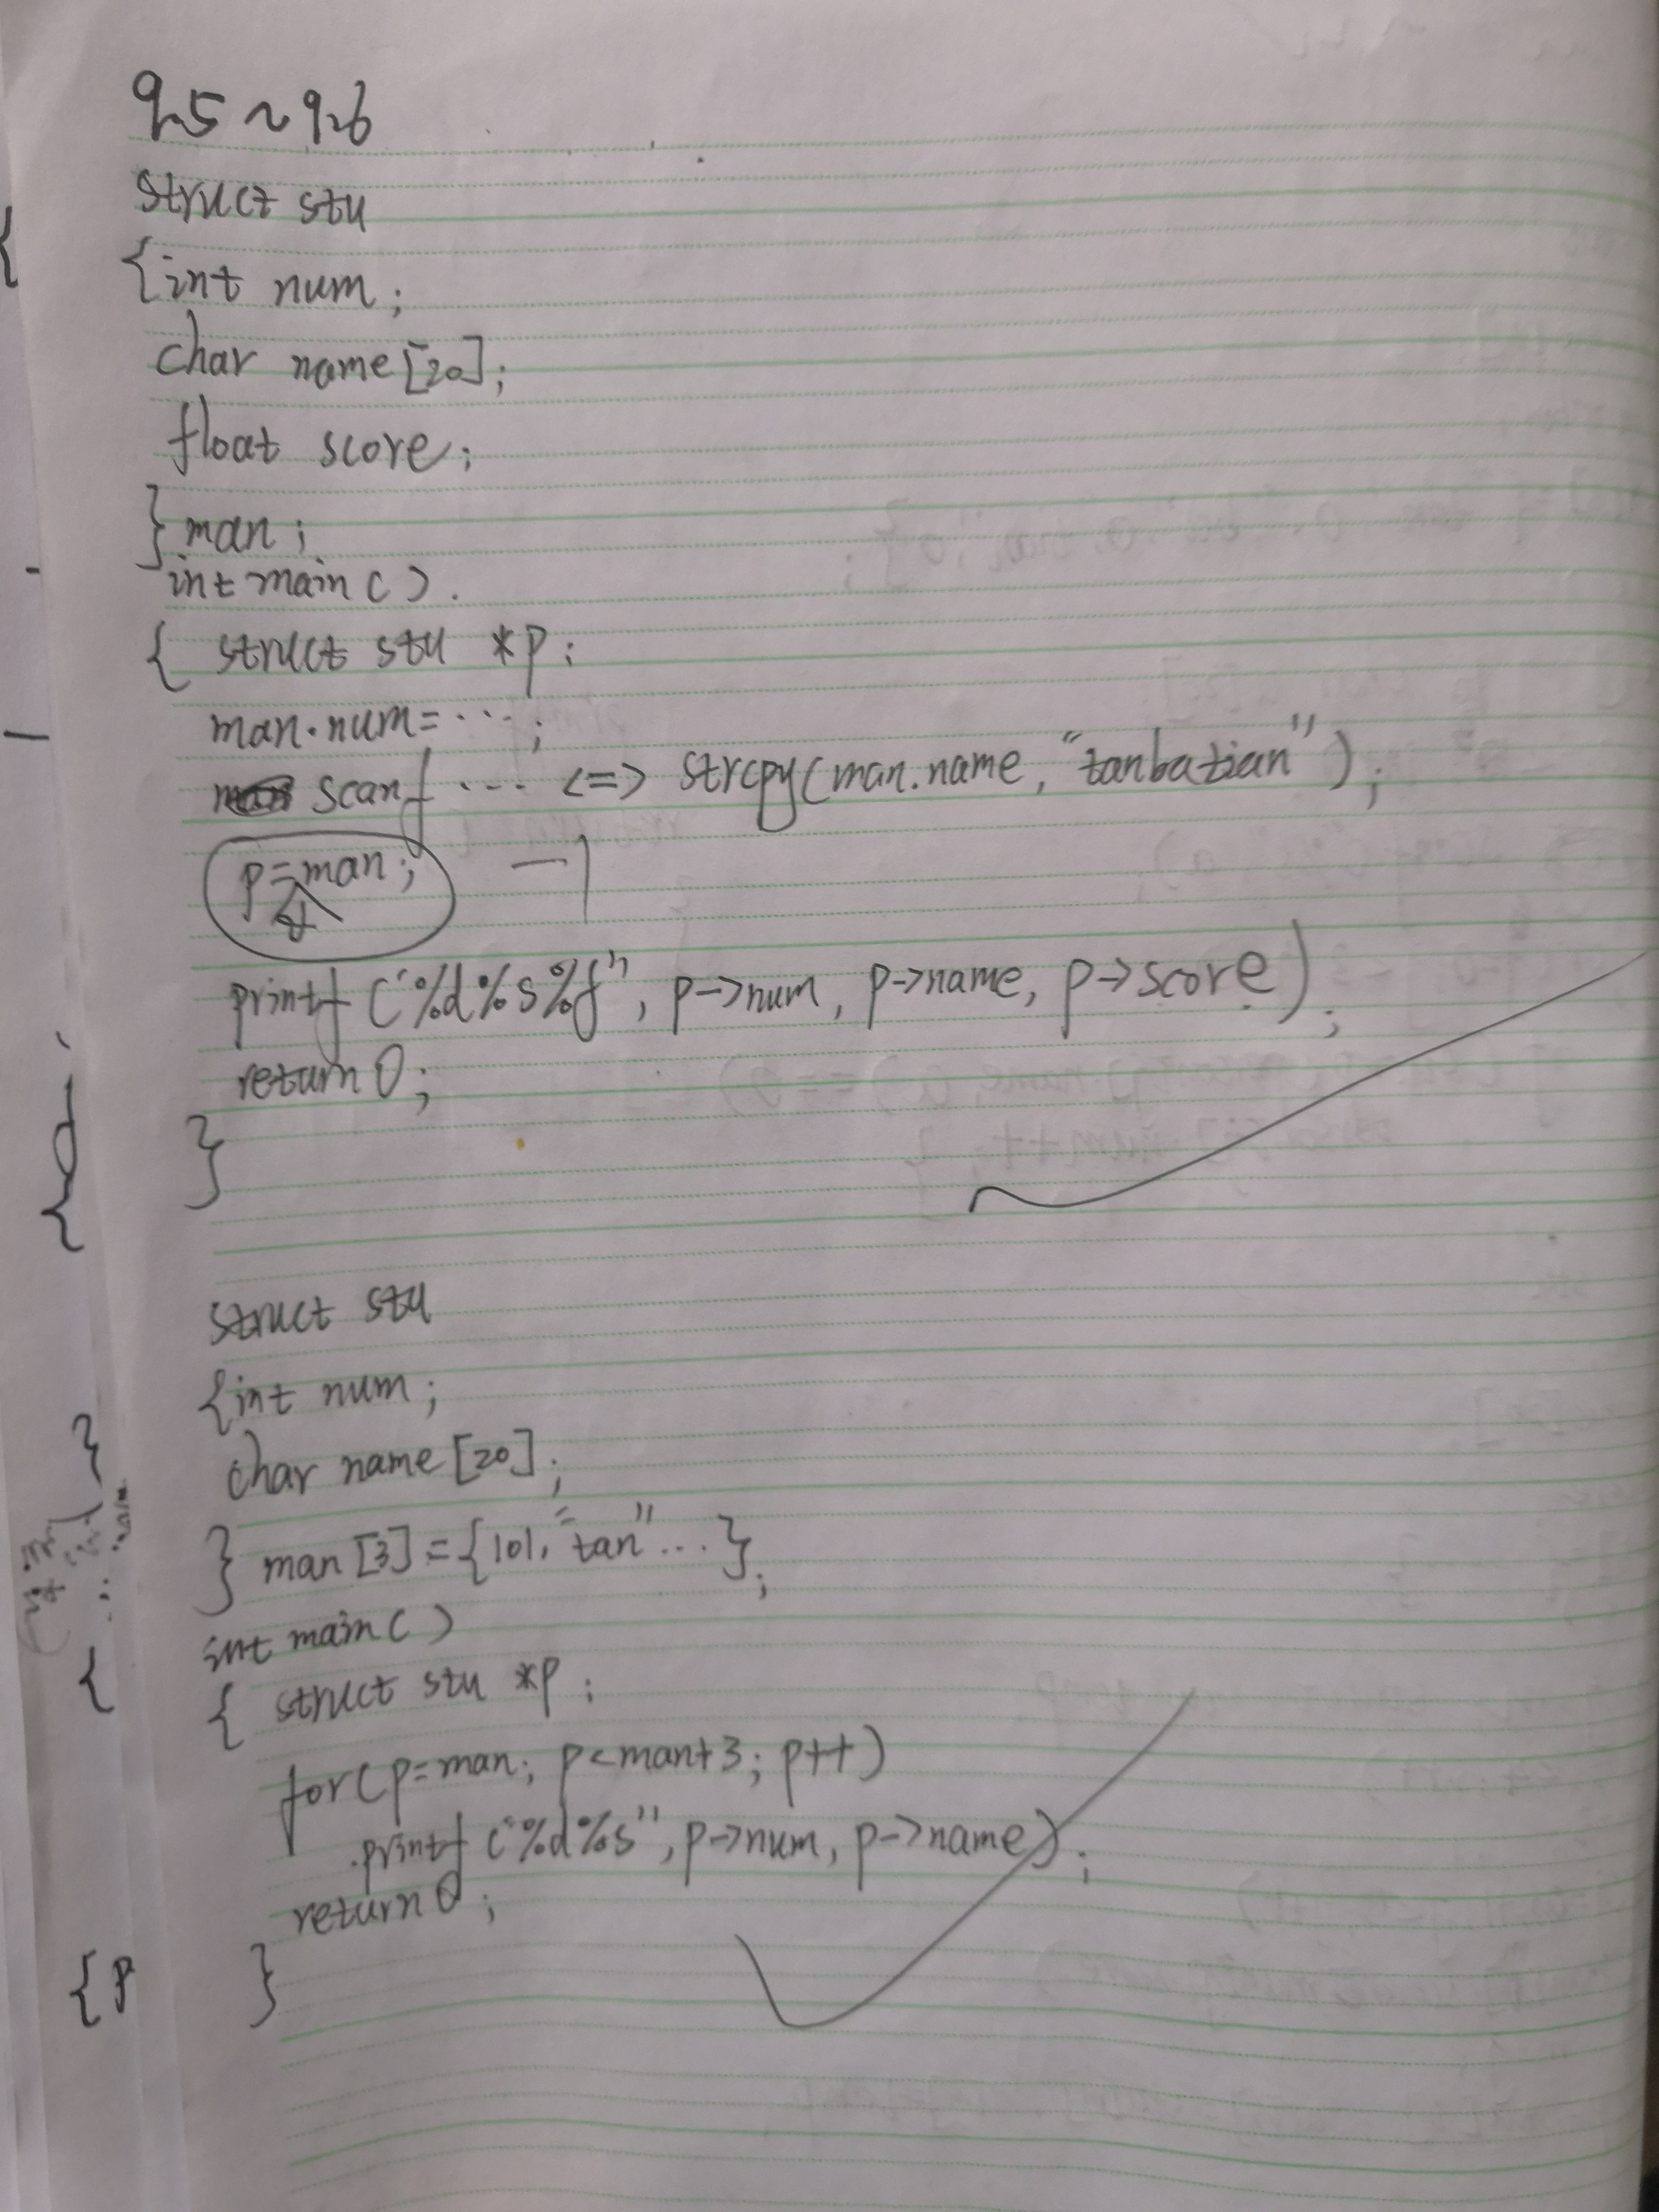 9.5~9.6
struct stu
{int num;
char name[20];
float score;
}man;
int main()
{ struct stu *p;
man.num=...;
scanf ... <=> strcpy(man.name, "tanbatian");
p=man; —1
&
printf("%d%s%f", p->num, p->name, p->score);
return 0;
}
struct stu
{int num;
char name[20];
} man[3]={101,"tan"...};
int main()
{ struct stu *p;
for(p=man; p<man+3; p++)
printf("%d%s",p->num, p->name);
return 0;
}
{p